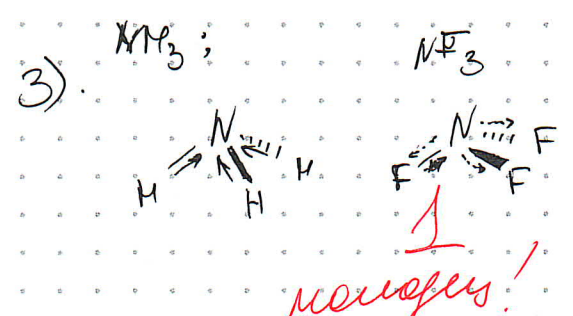 3). NH₃; NF₃
N N
H H H F F F
1
молодец!